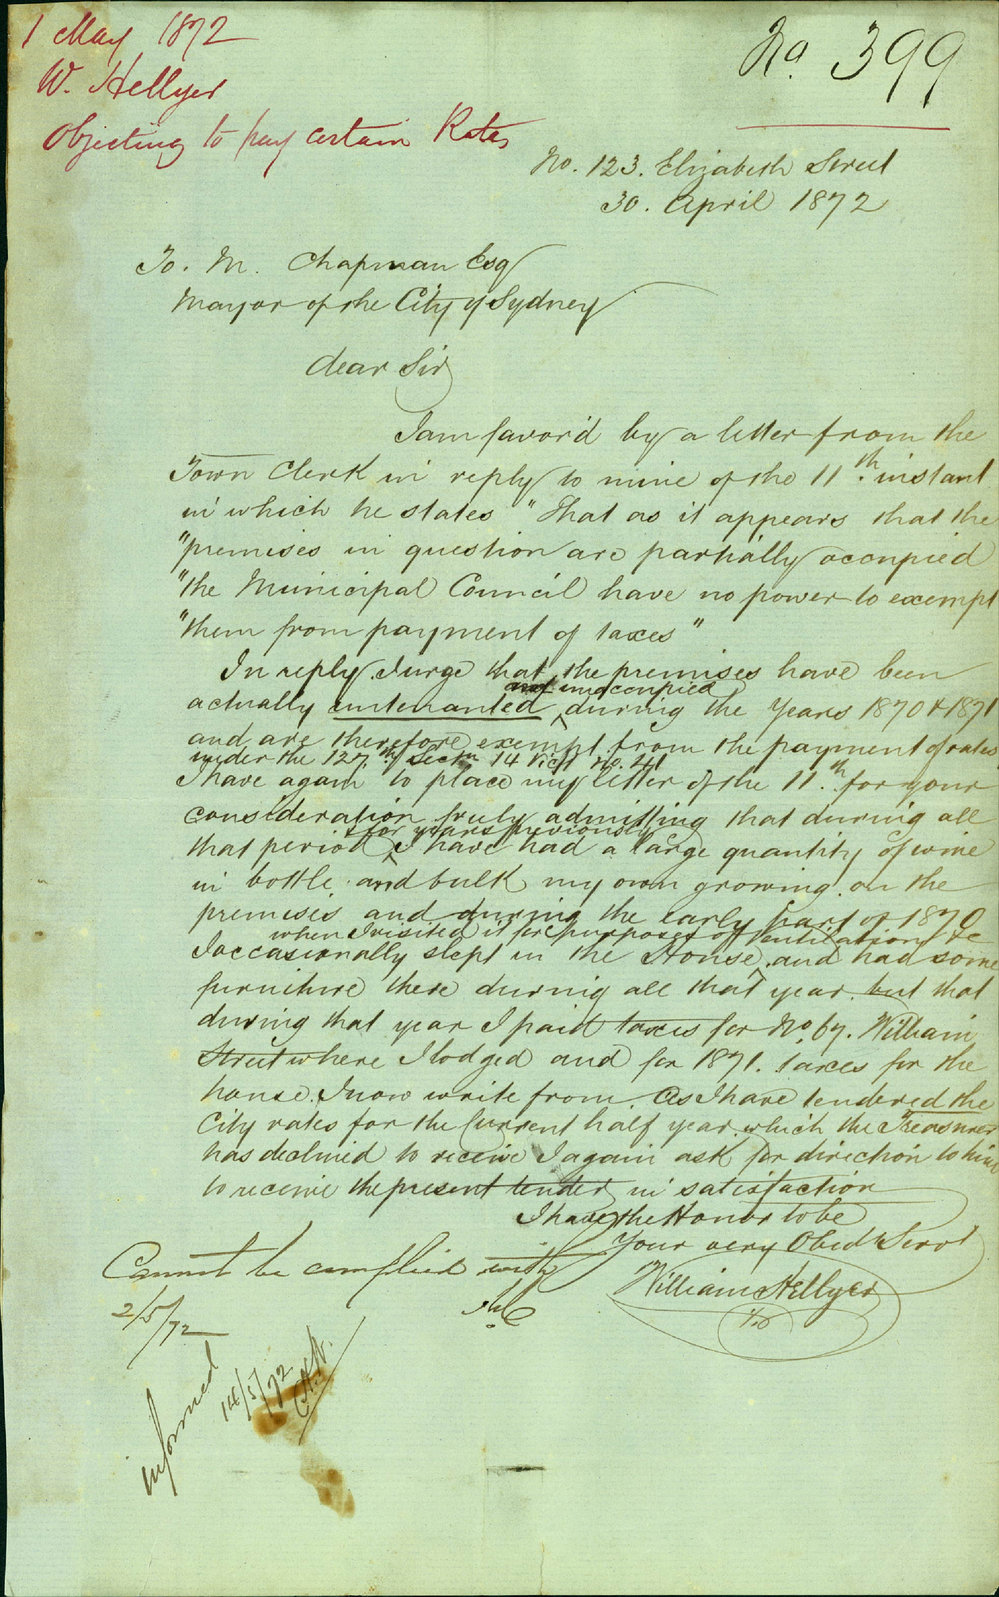 1 May 1872
W. Hellyer
Objecting to pay certain Rates
No. 399
No. 123. Elizabeth Street
30. April 1872
To. M. Chapman Esq
Mayor of the City of Sydney
dear Sir
I am favor'd by a letter from the
Town Clerk in reply to mine of the 11th. instant
in which he states "That as it appears that the
"premises in question are partially occupied
"the Municipal Council have no power to exempt
"them from payment of taxes"
In reply I urge that the premises have been
and unoccupied
actually untenanted during the Years 1870 & 1871
and are therefore exempt from the payment of rates
under the 127th Sectn 14 Vict No. 41
I have again to place my letter of the 11th. for your
consideration truly admitting that during all
& for years previously
that period I have had a large quantity of wine
in bottle and bulk my own growing on the
premises and during the early part of 1870
when I visited it for purposes of Ventilation &c
I occasionally slept in the House, and had some
furniture there during all that year but that
during that year I paid taxes for No. 67. William
Street where I lodged and for 1871. taxes for the
house. I now write from. As I have tendered the
City rates for the Current half year which the Treasurer
has declined to receive I again ask for direction to him
to receive the present tender in satisfaction
I have the Honor to be
Your very Obedt Servt
William Hellyer
Cannot be complied with
2/5/72
informed
14/5/72